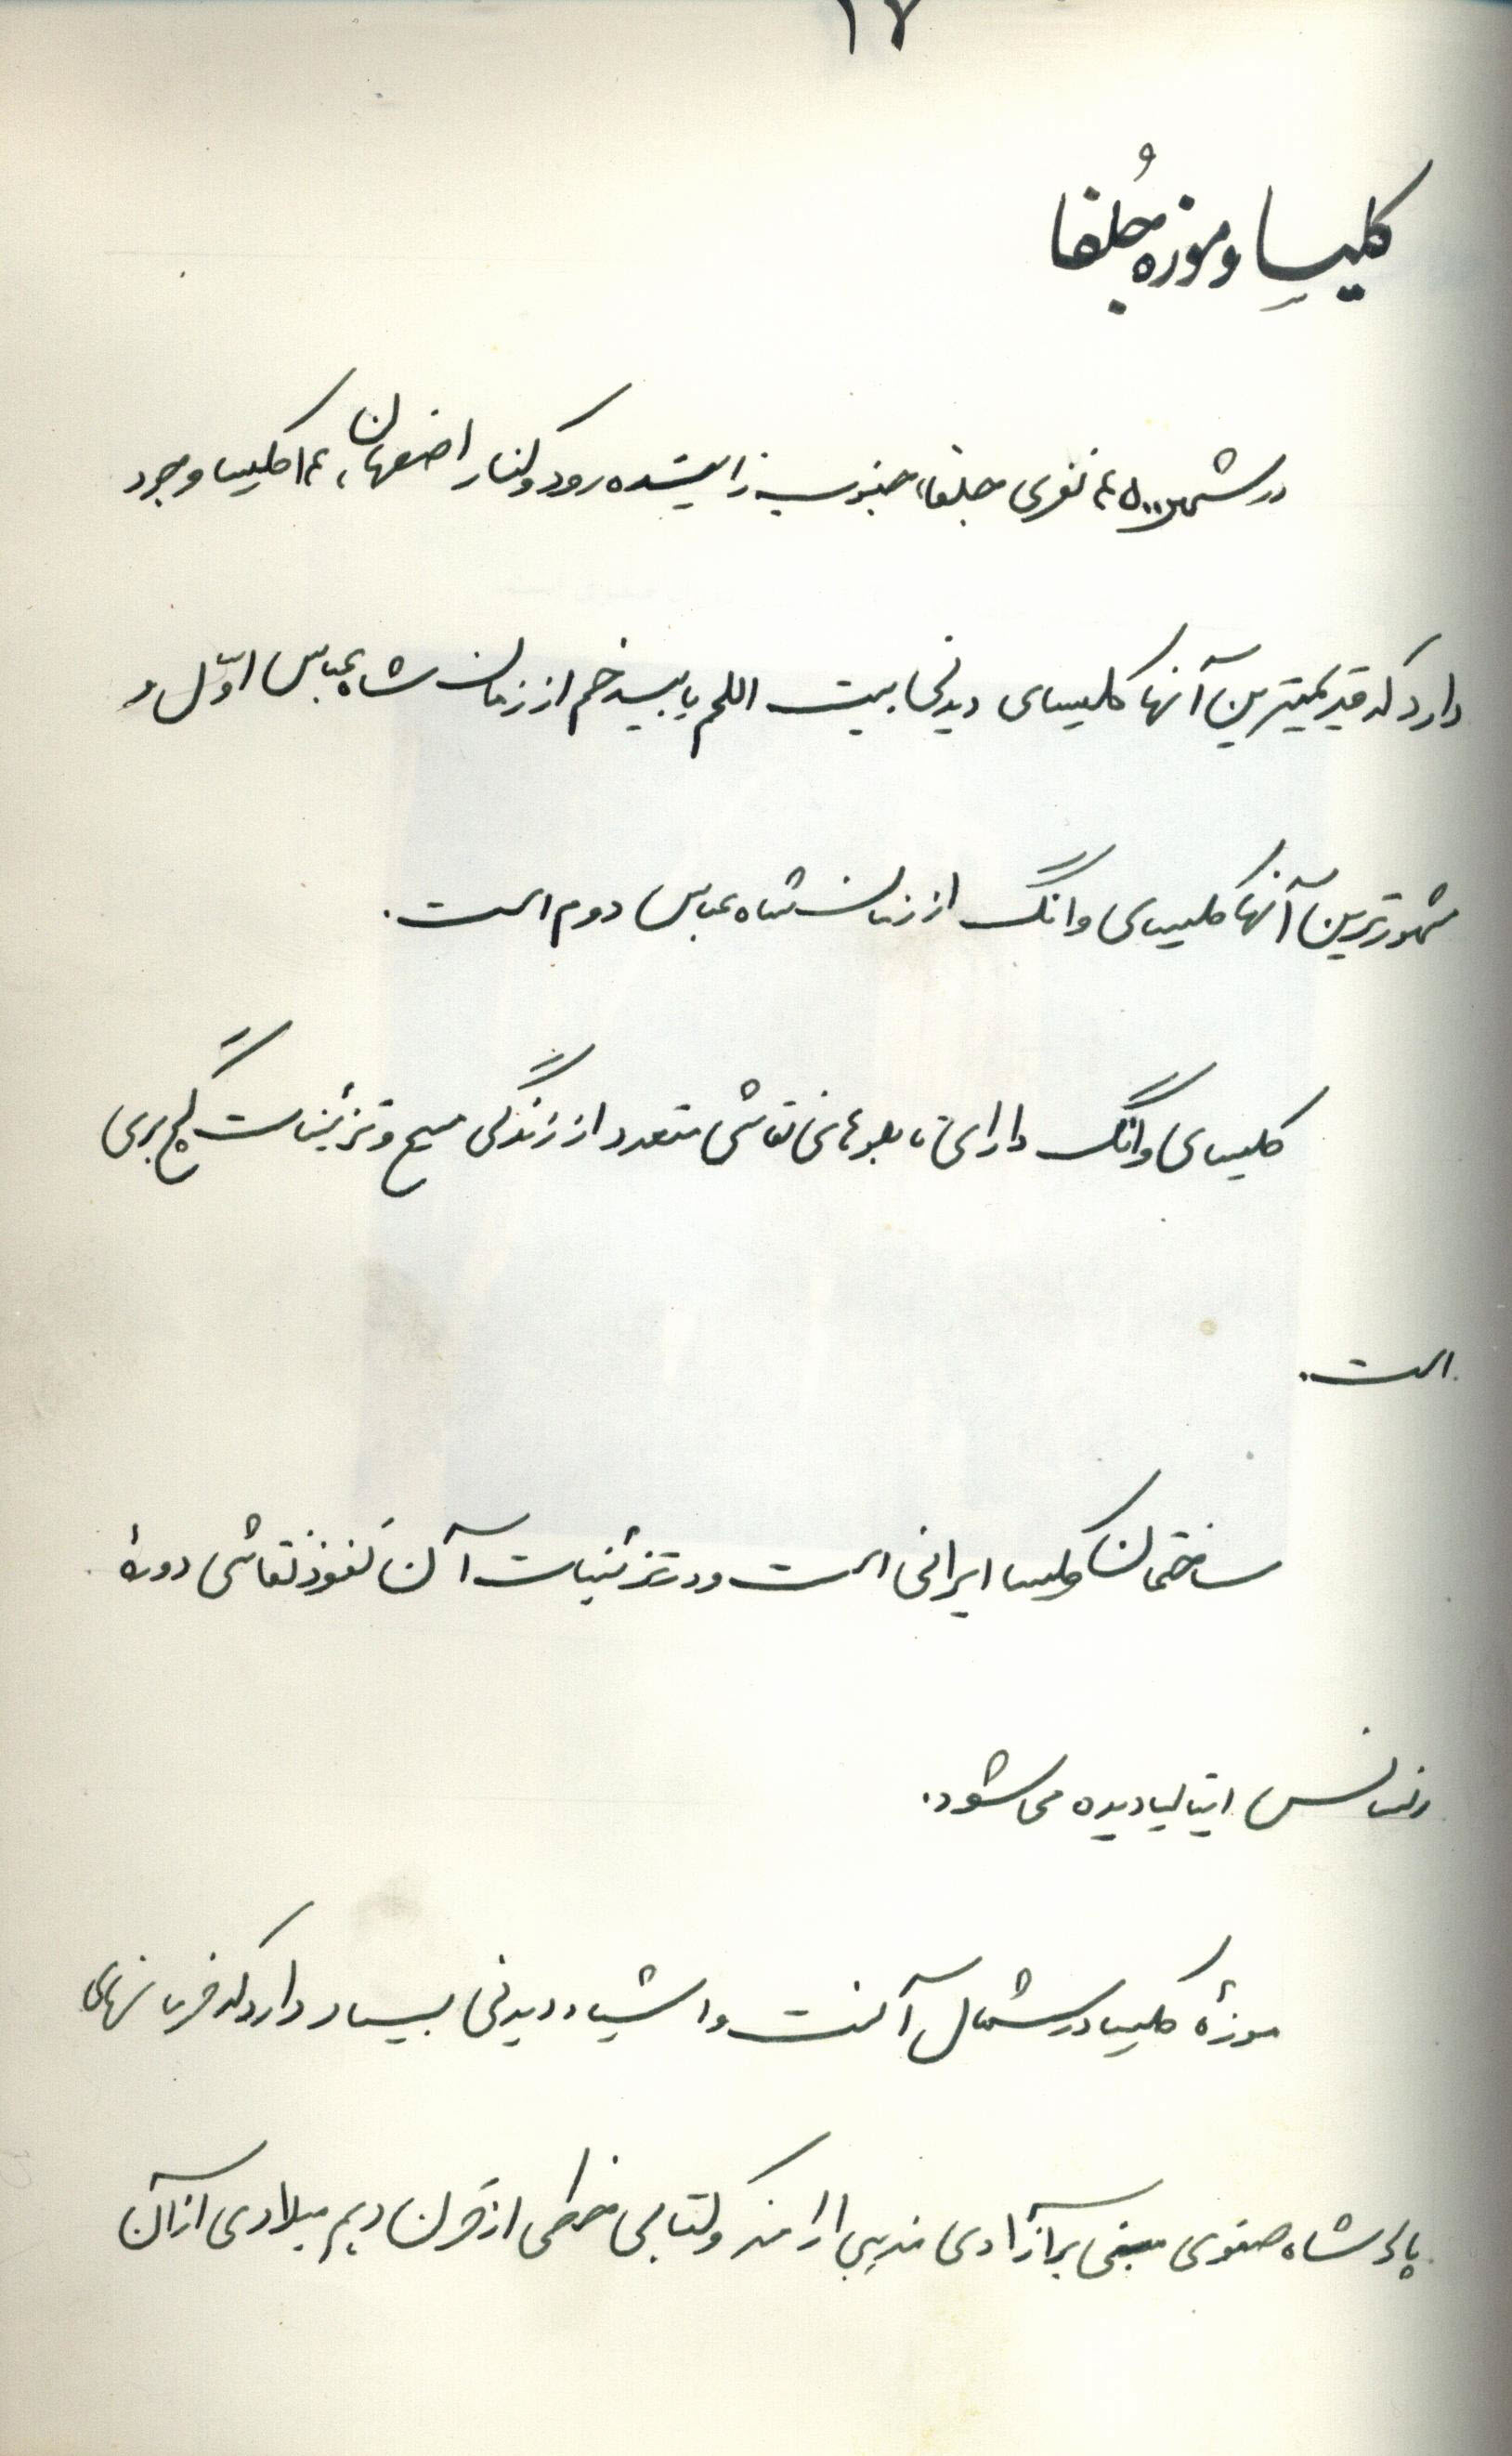 ۱۷
کلیسا و موزه جُلفا
در شهر ۴۵۰۰ نفری جلفا، جنوب زاینده رود و کنار اصفهان، ۱۴ کلیسا وجود
دارد که قدیمیترین آنها کلیسای دیدنی بیت اللحم یا بیدخم از زمان شاه عباس اوّل و
مشهورترین آنها کلیسای وانگ از زمان شاه عباس دوم است.
کلیسای وانگ دارای تابلوهای نقاشی متعدد از زندگی مسیح و تزئینات گچ بری
است.
ساختمان کلیسا ایرانی است و در تزئینات آن نفوذ نقاشی دورهٔ
رنسانس ایتالیا دیده می شود.
موزهٔ کلیسا در شمال آنست و اشیاء دیدنی بسیار دارد که فرمانهای
پادشاه صفوی مبنی بر آزادی مذهبی ارامنه و کتابی خطی از قرن دهم میلادی از آن